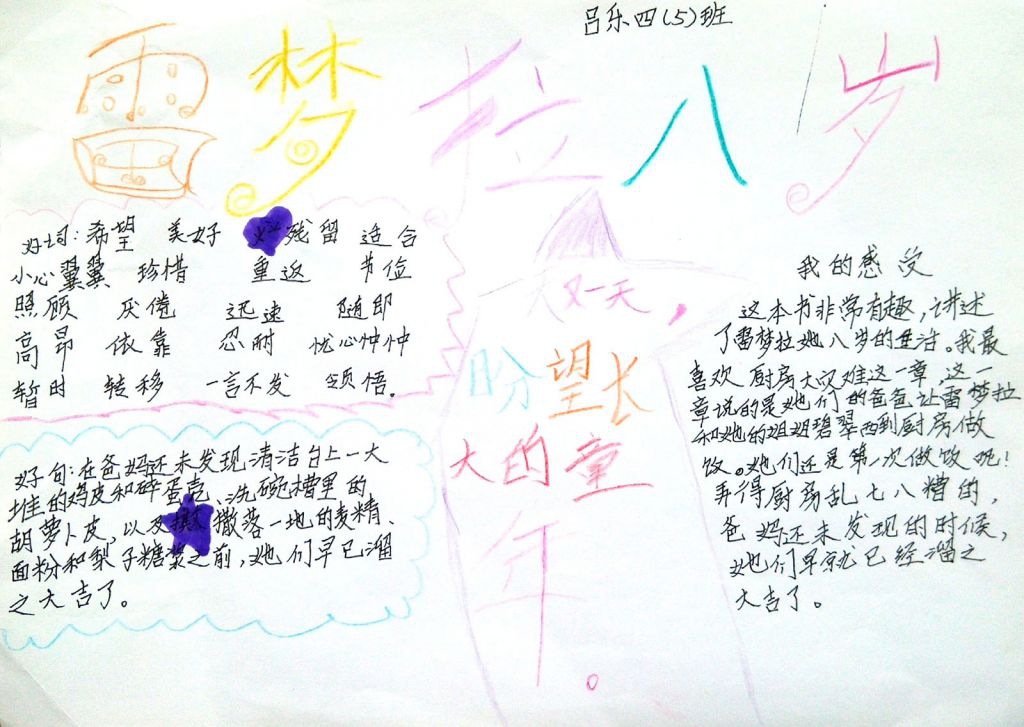 吕乐四(5)班
雷梦拉八岁
好词:希望 美好 残留 适合
小心翼翼 珍惜 重返 节俭
照顾 厌倦 迅速 随即
高昂 依靠 忍耐 忧心忡忡
暂时 转移 一言不发 领悟。
好句:在爸妈还未发现清洁台上一大
堆的鸡皮和碎蛋壳、洗碗槽里的
胡萝卜皮,以及撒落一地的麦精、
面粉和梨子糖浆之前,她们早已溜
之大吉了。
一天又一天,
盼望长
大的童
年。
我的感受
这本书非常有趣,讲述
了雷梦拉她八岁的生活。我最
喜欢厨房大灾难这一章,这一
章说的是她们的爸爸让雷梦拉
和她的姐姐碧翠西到厨房做
饭。她们还是第一次做饭呢!
弄得厨房乱七八糟的,
爸妈还未发现的时候,
她们早就已经溜之
大吉了。